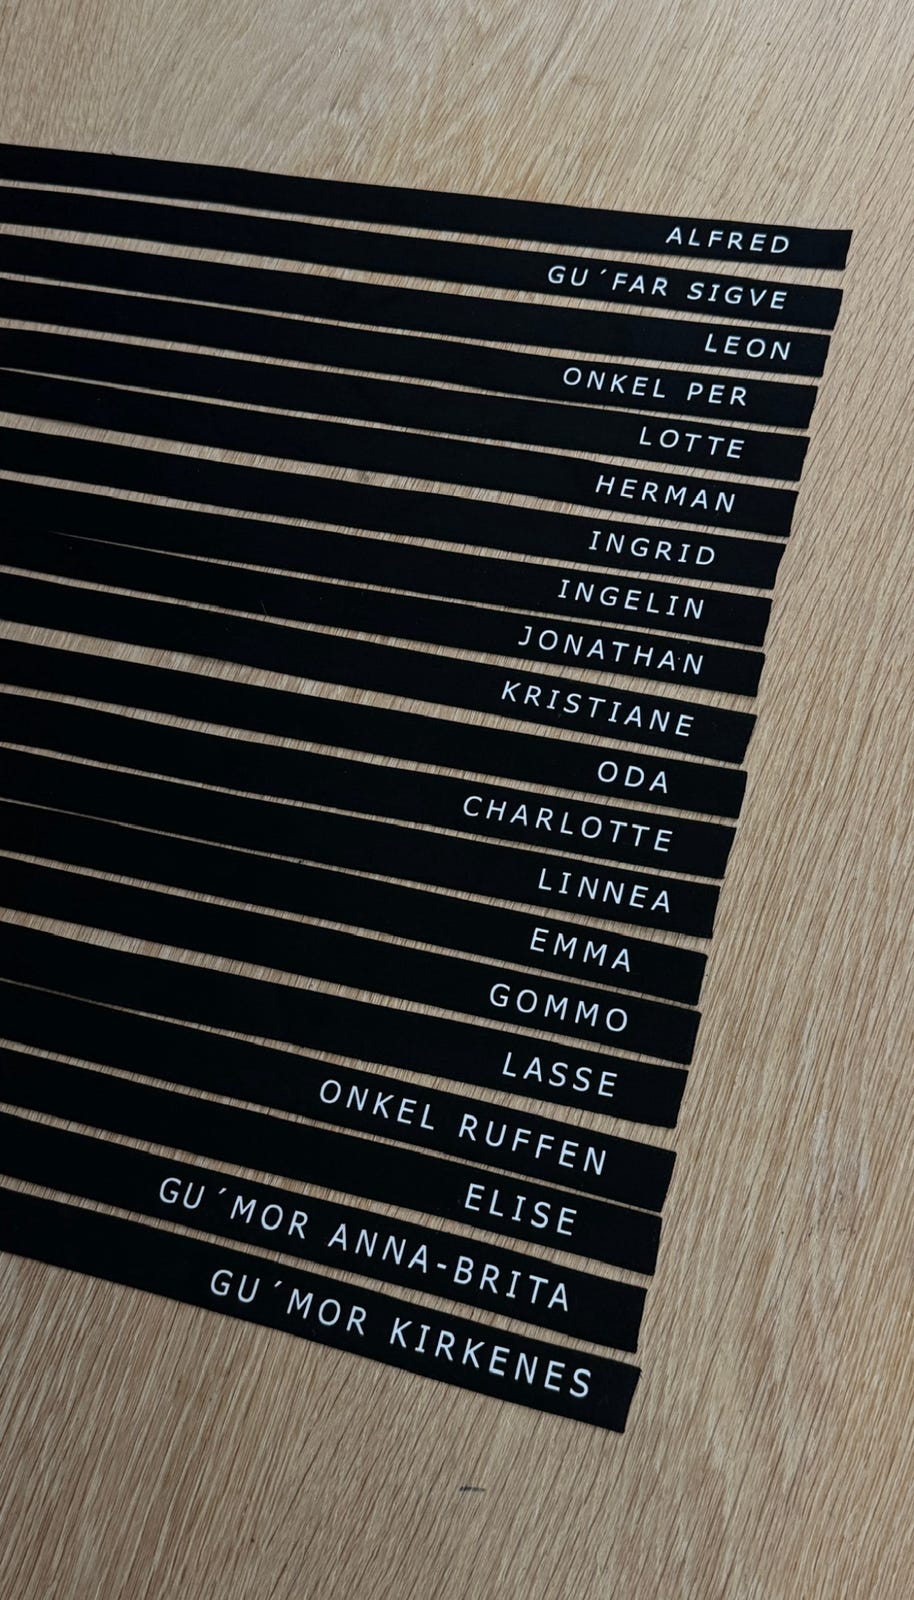 ALFRED
GU´FAR SIGVE
LEON
ONKEL PER
LOTTE
HERMAN
INGRID
INGELIN
JONATHAN
KRISTIANE
ODA
CHARLOTTE
LINNEA
EMMA
GOMMO
LASSE
ONKEL RUFFEN
ELISE
GU´MOR ANNA-BRITA
GU´MOR KIRKENES